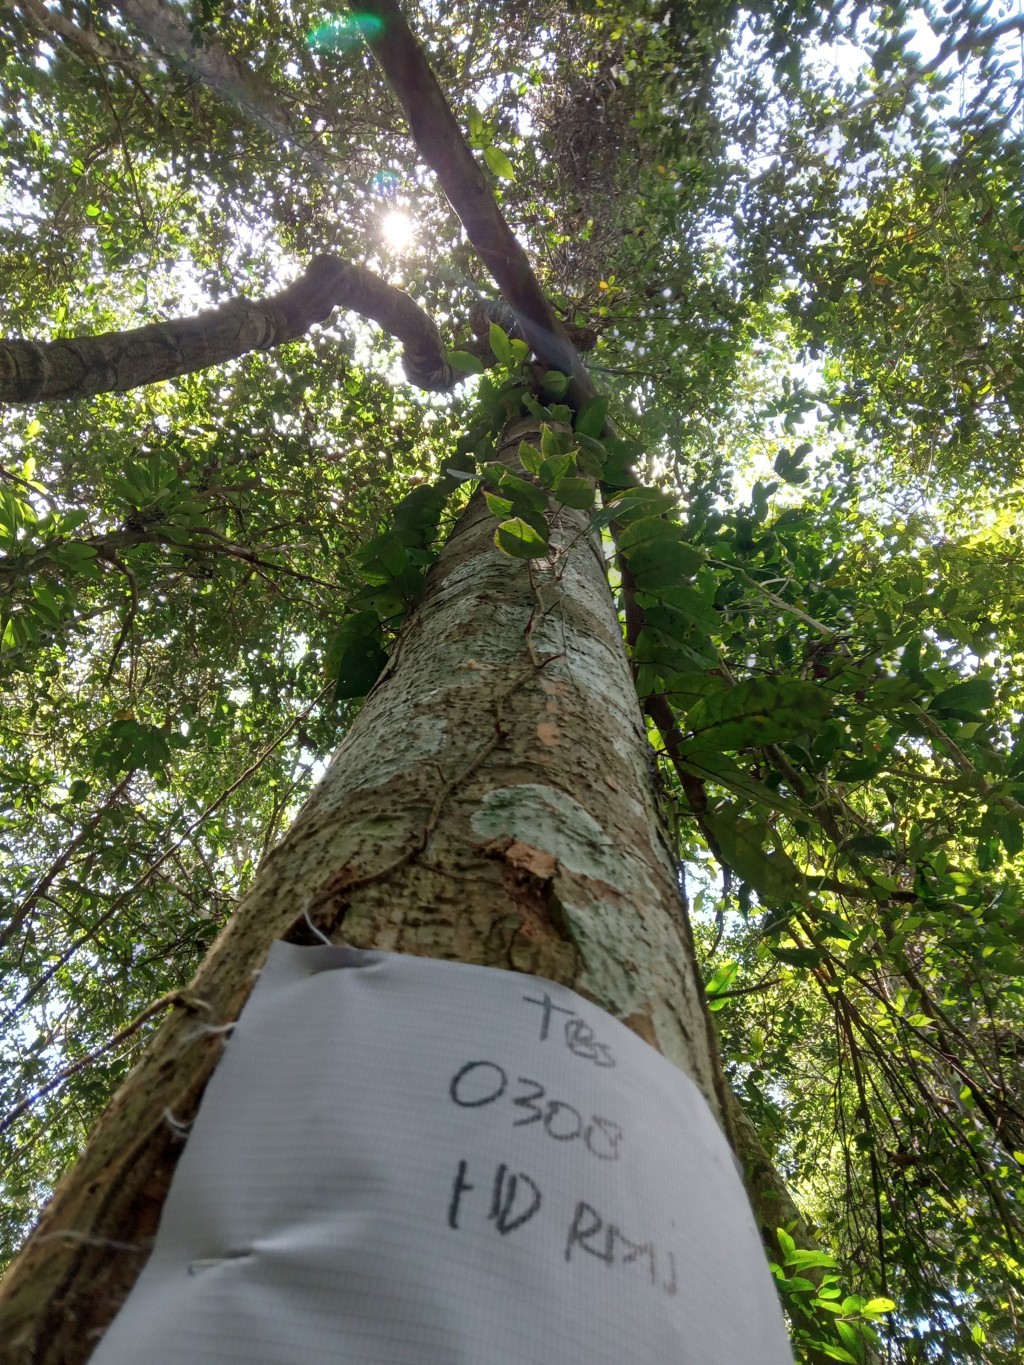 TBS
0308
HD RMJ